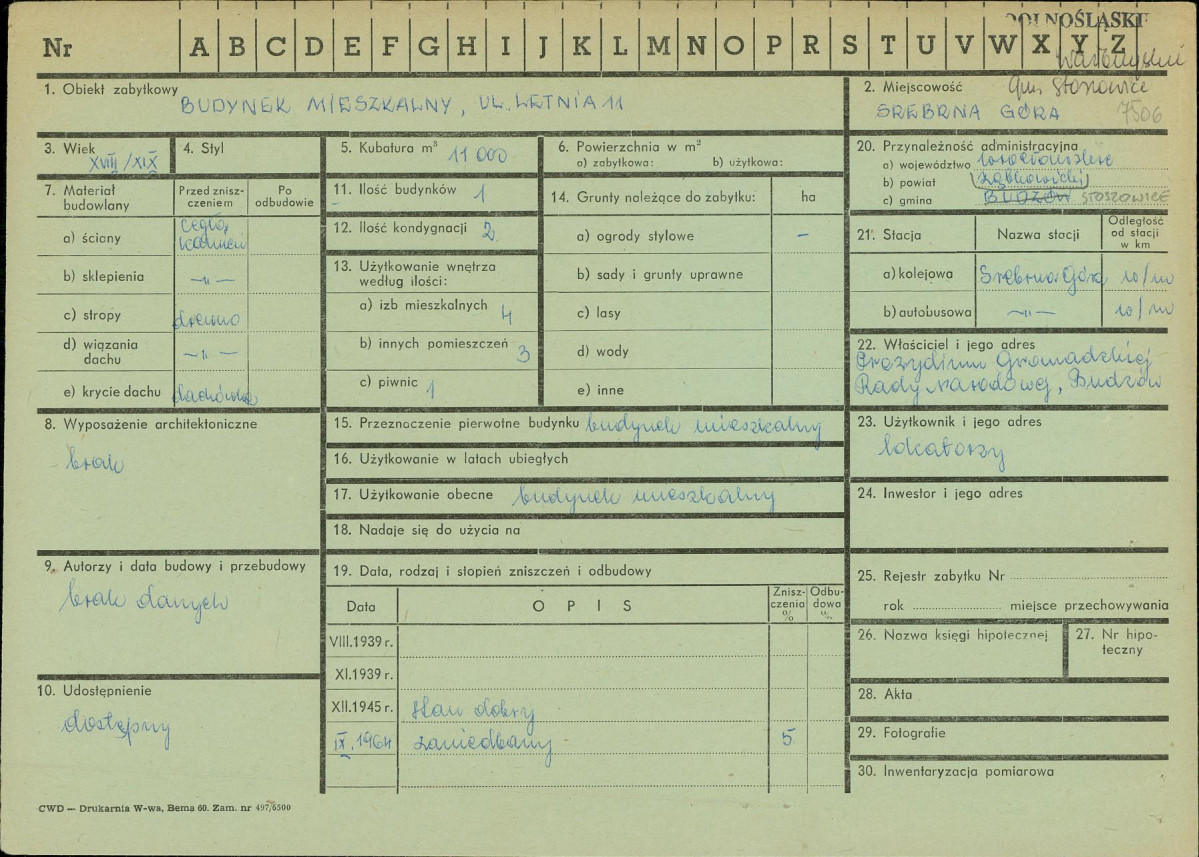 DOLNOŚLĄSKIE
Nr A B C D E F G H I J K L M N O P R S T U V W X Y Z
Gm. Stoszowice
1. Obiekt zabytkowy BUDYNEK MIESZKALNY, UL. LETNIA 11
2. Miejscowość
SREBRNA GÓRA 7506
3. Wiek
XVIII/XIX
4. Styl
5. Kubatura m³ 11 000
6. Powierzchnia w m²
a) zabytkowa: b) użytkowa:
20. Przynależność administracyjna
a) województwo wrocławskie
b) powiat ząbkowicki
c) gmina BUDZÓW STOSZOWICE
7. Materiał budowlany
Przed zniszczeniem
Po odbudowie
a) ściany cegła, kamień
b) sklepienia —„—
c) stropy drewno
d) wiązania dachu —„—
e) krycie dachu dachówka
11. Ilość budynków 1
12. Ilość kondygnacji 2
13. Użytkowanie wnętrza
według ilości:
a) izb mieszkalnych 4
b) innych pomieszczeń 3
c) piwnic 1
14. Grunty należące do zabytku: ha
a) ogrody stylowe –
b) sady i grunty uprawne
c) lasy
d) wody
e) inne
21. Stacja Nazwa stacji Odległość od stacji w km
a) kolejowa Srebrna Góra w/m
b) autobusowa —„— w/m
22. Właściciel i jego adres
Prezydium Gromadzkiej
Rady Narodowej, Budzów
8. Wyposażenie architektoniczne
brak
15. Przeznaczenie pierwotne budynku budynek mieszkalny
16. Użytkowanie w latach ubiegłych
17. Użytkowanie obecne budynek mieszkalny
18. Nadaje się do użycia na
23. Użytkownik i jego adres
lokatorzy
24. Inwestor i jego adres
9. Autorzy i data budowy i przebudowy
brak danych
10. Udostępnienie
dostępny
19. Data, rodzaj i stopień zniszczeń i odbudowy
Data OPIS Zniszczenia % Odbudowa %
VIII.1939 r.
XI.1939 r.
XII.1945 r. stan dobry
IX.1964 zaniedbany 5
25. Rejestr zabytku Nr
rok miejsce przechowywania
26. Nazwa księgi hipotecznej
27. Nr hipoteczny
28. Akta
29. Fotografie
30. Inwentaryzacja pomiarowa
CWD — Drukarnia W-wa, Bema 60. Zam. nr 497/6500